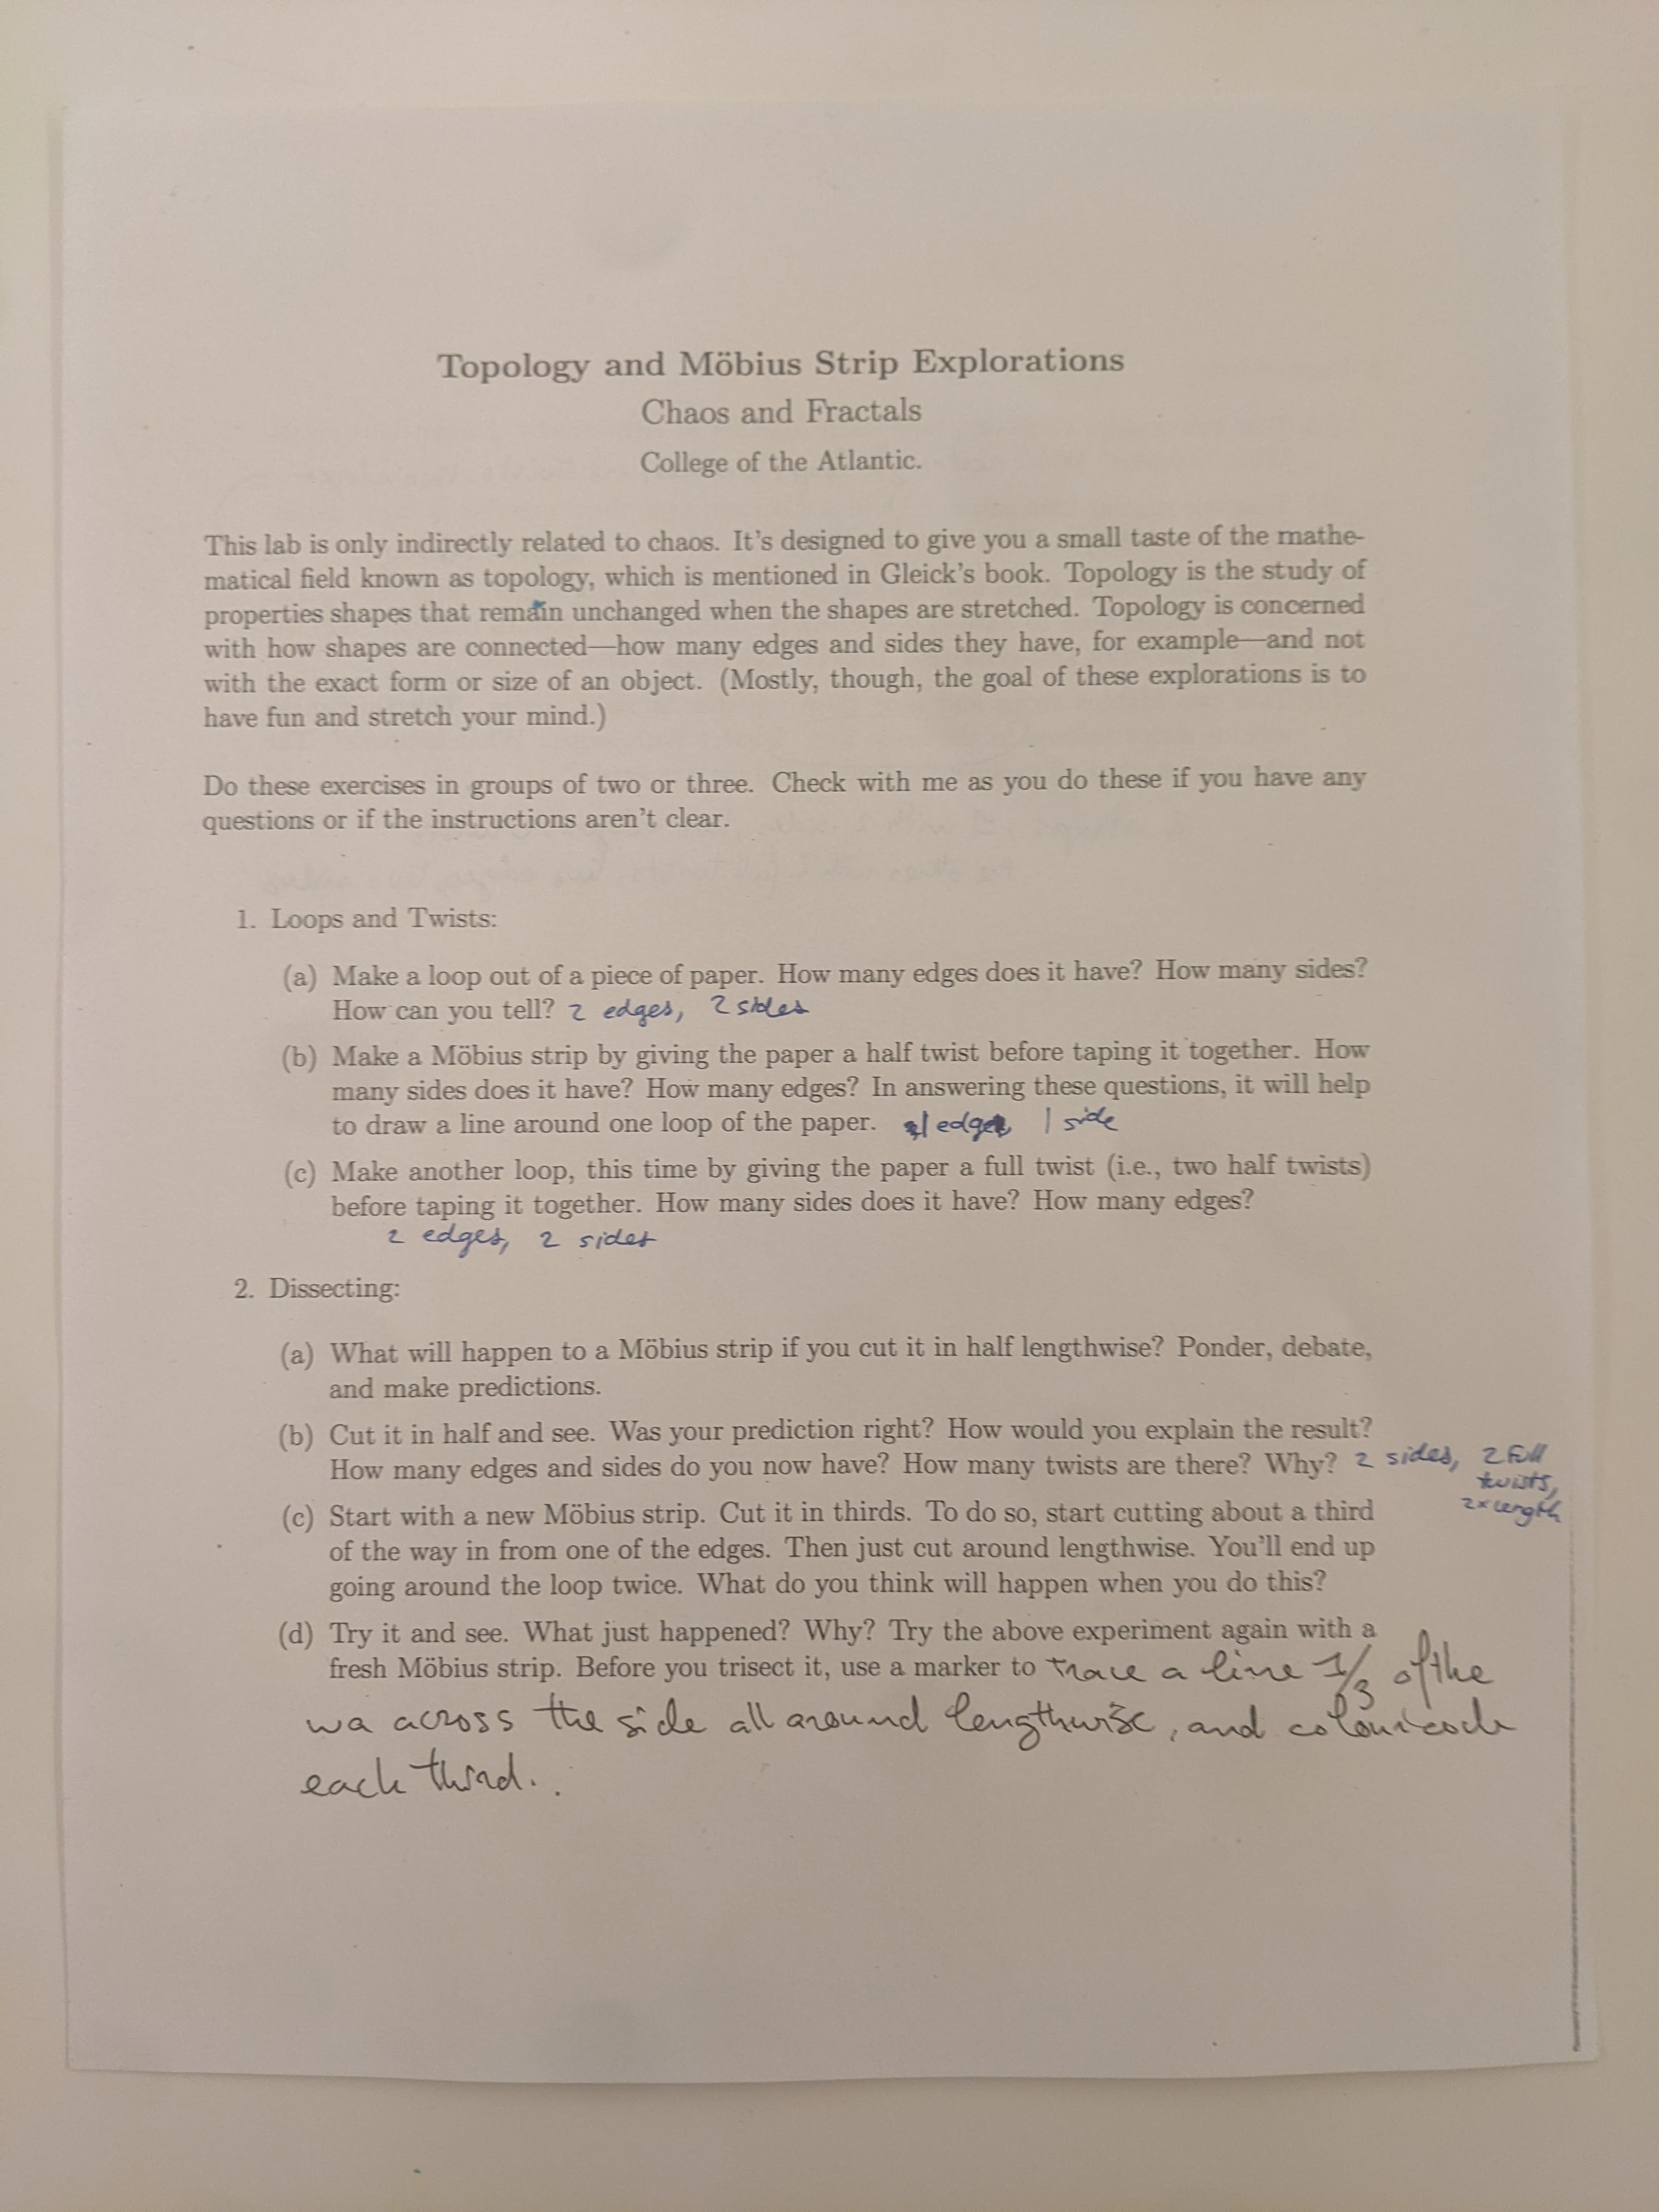 Topology and Möbius Strip Explorations
Chaos and Fractals
College of the Atlantic.
This lab is only indirectly related to chaos. It's designed to give you a small taste of the mathe-
matical field known as topology, which is mentioned in Gleick's book. Topology is the study of
properties shapes that remain unchanged when the shapes are stretched. Topology is concerned
with how shapes are connected—how many edges and sides they have, for example—and not
with the exact form or size of an object. (Mostly, though, the goal of these explorations is to
have fun and stretch your mind.)
Do these exercises in groups of two or three. Check with me as you do these if you have any
questions or if the instructions aren't clear.
1. Loops and Twists:
(a) Make a loop out of a piece of paper. How many edges does it have? How many sides?
How can you tell? 2 edges, 2 sides
(b) Make a Möbius strip by giving the paper a half twist before taping it together. How
many sides does it have? How many edges? In answering these questions, it will help
to draw a line around one loop of the paper. 1 edge 1 side
(c) Make another loop, this time by giving the paper a full twist (i.e., two half twists)
before taping it together. How many sides does it have? How many edges?
2 edges, 2 sides
2. Dissecting:
(a) What will happen to a Möbius strip if you cut it in half lengthwise? Ponder, debate,
and make predictions.
(b) Cut it in half and see. Was your prediction right? How would you explain the result?
How many edges and sides do you now have? How many twists are there? Why? 2 sides, 2 full
twists,
2x length
(c) Start with a new Möbius strip. Cut it in thirds. To do so, start cutting about a third
of the way in from one of the edges. Then just cut around lengthwise. You'll end up
going around the loop twice. What do you think will happen when you do this?
(d) Try it and see. What just happened? Why? Try the above experiment again with a
fresh Möbius strip. Before you trisect it, use a marker to trace a line 1/3 of the
wa across the side all around lengthwise, and colour code
each third..